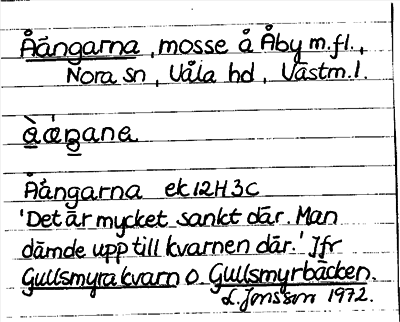 Åängarna, mosse å Åby m.fl.,
Nora sn, Våla hd, Västm.l.
Åängarna ek 12H3c
'Det är mycket sankt där. Man
dämde upp till kvarnen där.' Jfr
Gullsmyra kvarn o. Gullsmyrbäcken.
L. Jonsson 1972.